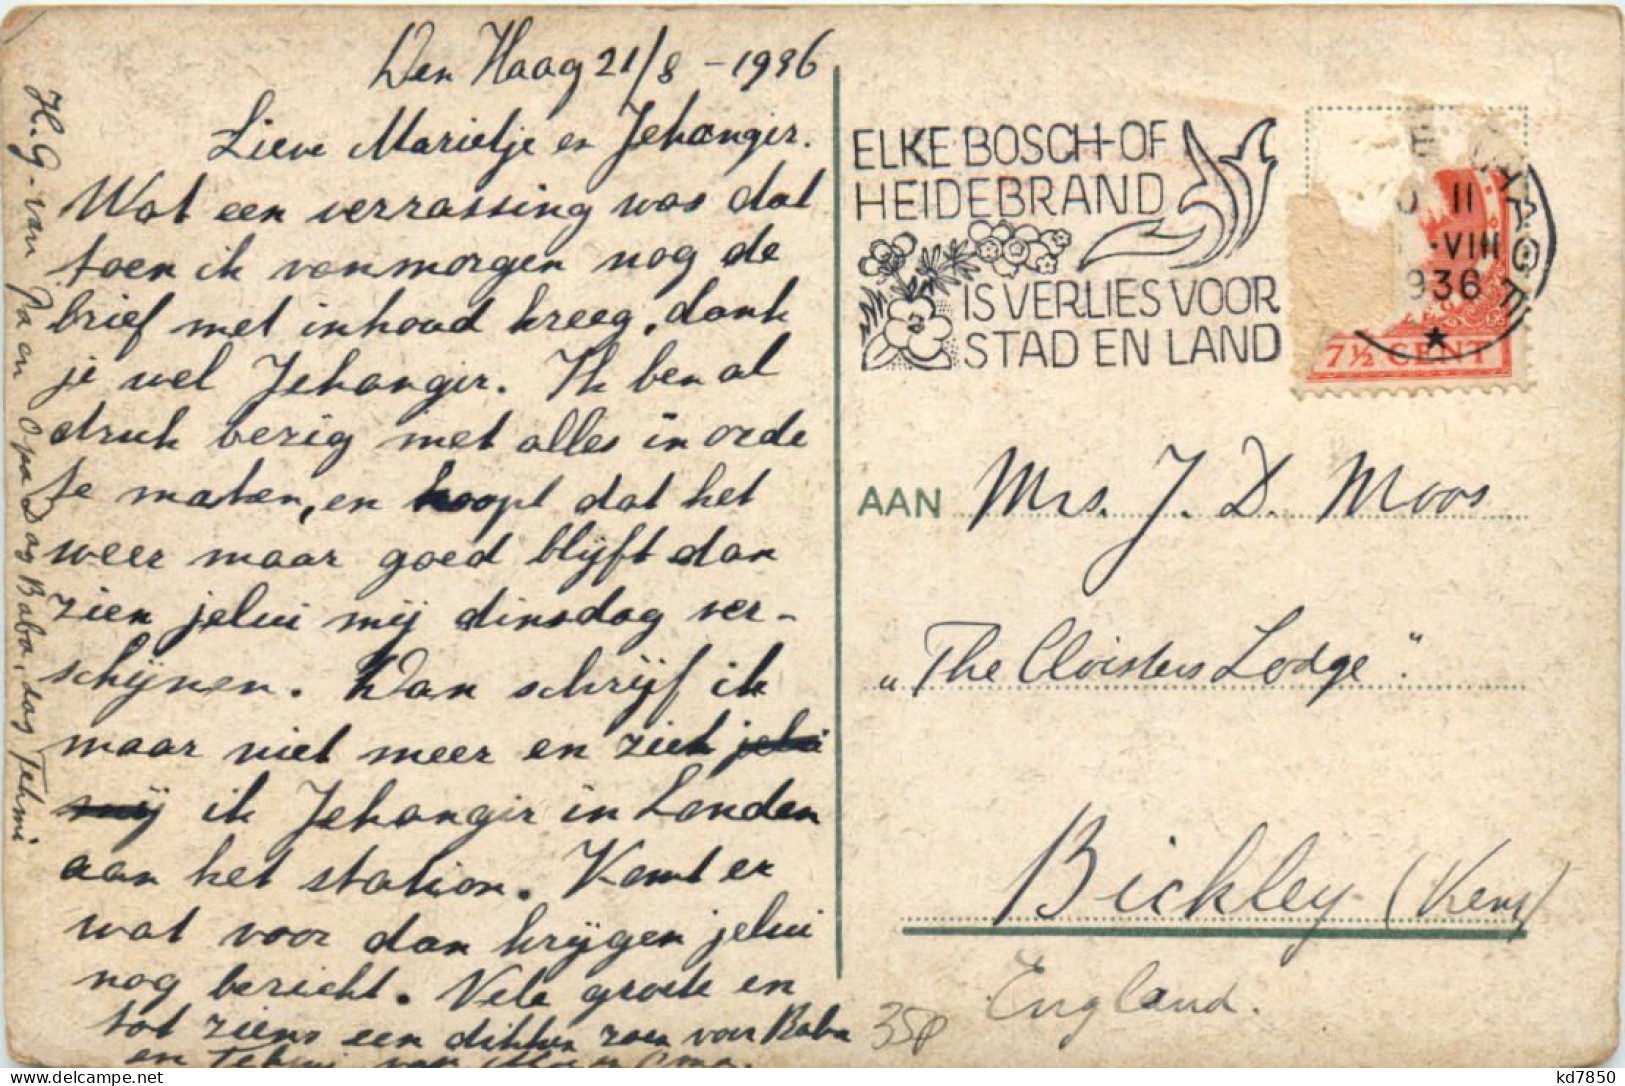 Den Haag 21/8 - 1936
Lieve Marietje en Jehangir.
Wat een verrassing was dat
toen ik vanmorgen nog de
brief met inhoud kreeg, dank
je wel Jehangir. Ik ben al
druk bezig met alles in orde
te maken, en hoopt dat het
weer maar goed blijft dan
zien jelui mij dinsdag ver-
schijnen. Dan schrijf ik
maar niet meer en ziet jelui
mij ik Jehangir in Londen
aan het station. Komt er
wat voor dan krijgen jelui
nog bericht. Vele groete en
tot ziens een dikken zoen voor Baba
en Tehmi van Ma en Oma.
H.G. van Pa en Opa Dag Baba, dag Tehmi
ELKE BOSCH-OF
HEIDEBRAND
IS VERLIES VOOR
STAD EN LAND
11
VIII
1936
7½ CENT
AAN Mrs. J. D. Moos
„The Cloisters Lodge".
Bickley (Kent)
England.
35p
kd7850